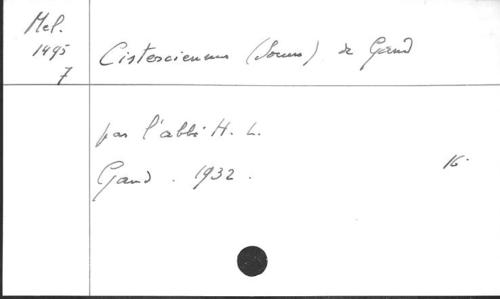 Mel.
1495
7
Cisterciennes (Soeurs) de Gand
par l'abbé H. L.
Gand. 1932.
16°